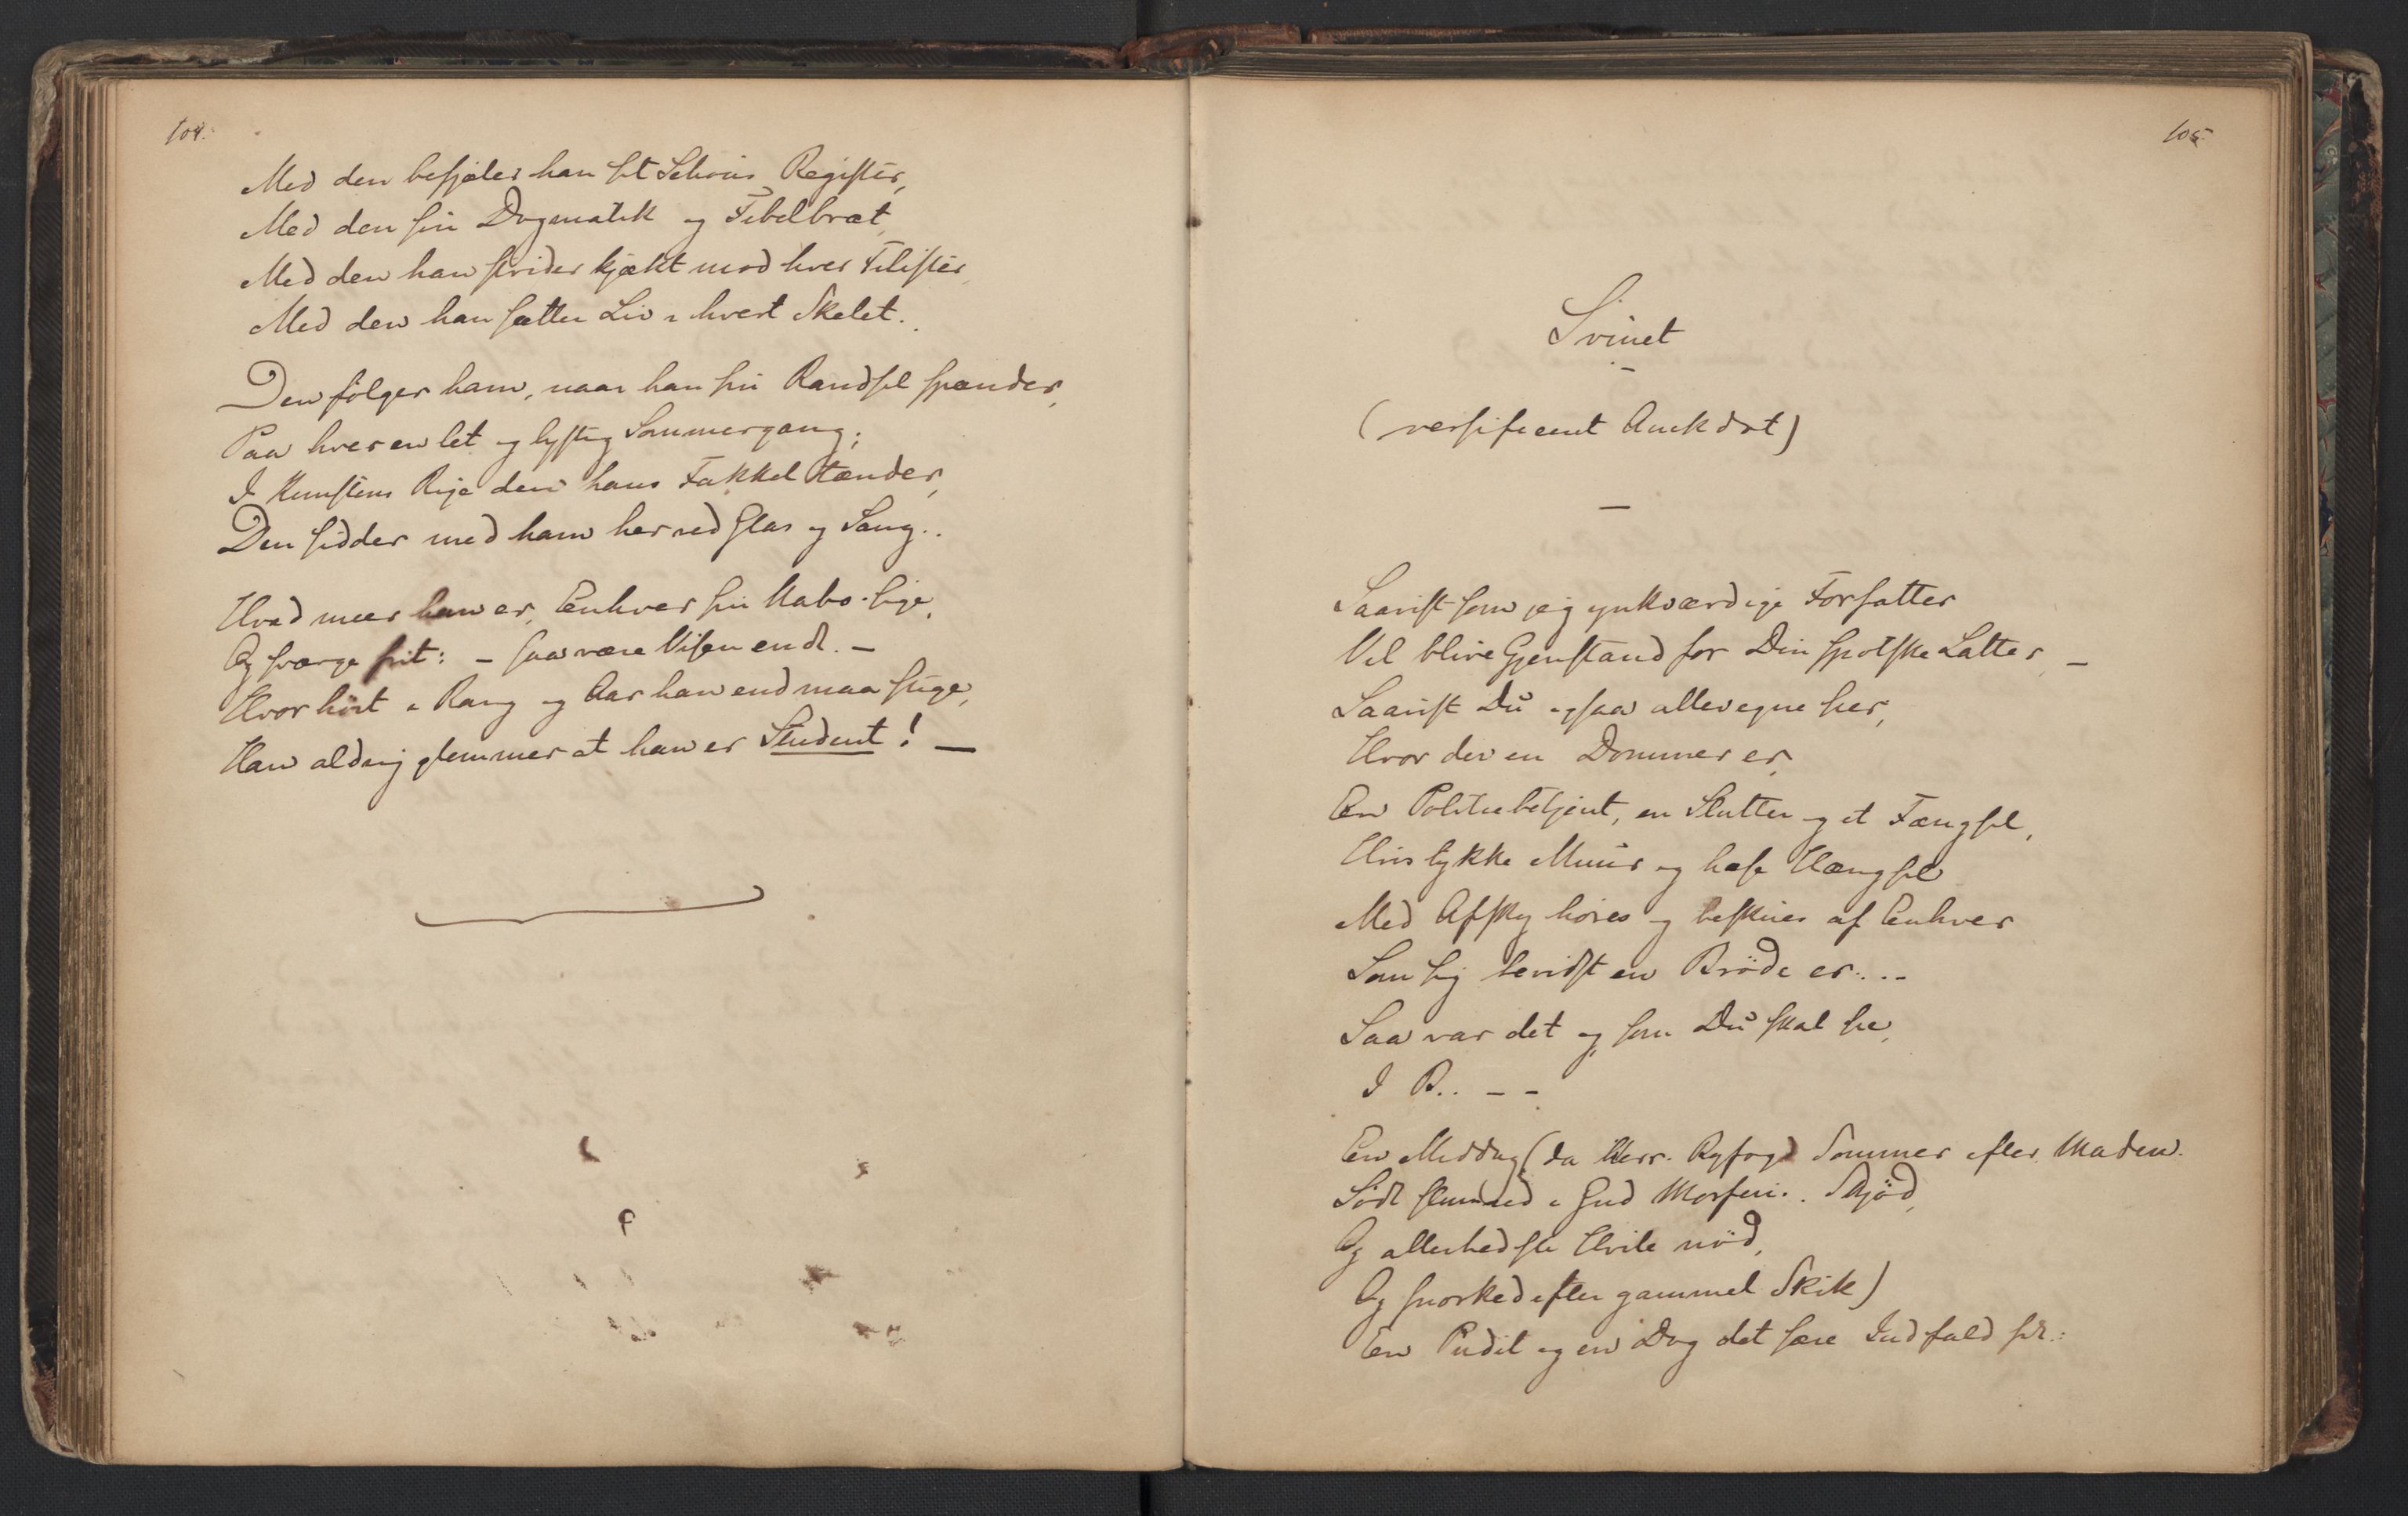 104.
Med den besjæler han sit Schous Register,
Med den sin Dogmatik og Fibelbræt,
Med den han strider kjækt mod hver Filister,
Med den han sætter Liv i hvert Skelet..
Den følger ham, naar han sin Randsel spænder,
Paa hver en let og lystig Sommergang;
I Kunstens Rige den hans Fakkel tænder,
Den sidder med ham her ved Glas og Sang..
Hvad meer han er, Enhver sin Nabo sige,
Og sværge frit: – saa være Visen endt. –
Hvor høit i Rang og Aar han end maa stige,
Han aldrig glemmer at han er Student! –
105
Svinet
(versificeret Anekdot)
Saavist som jeg ynkværdige Forfatter
Vil blive Gjenstand for Din spotske Latter, –
Saavist Du ogsaa allevegne seer,
Hvor der en Dommer er,
En Politiebetjent, en Slutter og et Fængsel,
Hvis tykke Muur og hæse Hængsel
Med Afsky høres og beskues af Enhver
Som sig bevidst en Brøde er....
Saa var det og, som Du skal see,
I R.. – –
En Middag (da Herr. Byfogd Sommer efter Maden.
Södt slumred i Gud Morfeus.. Skjöd,
Og allerbedste Hvile nöd,
Og snorked efter gammel Skik)
En Pudel og en Dog det sære Indfald fik: